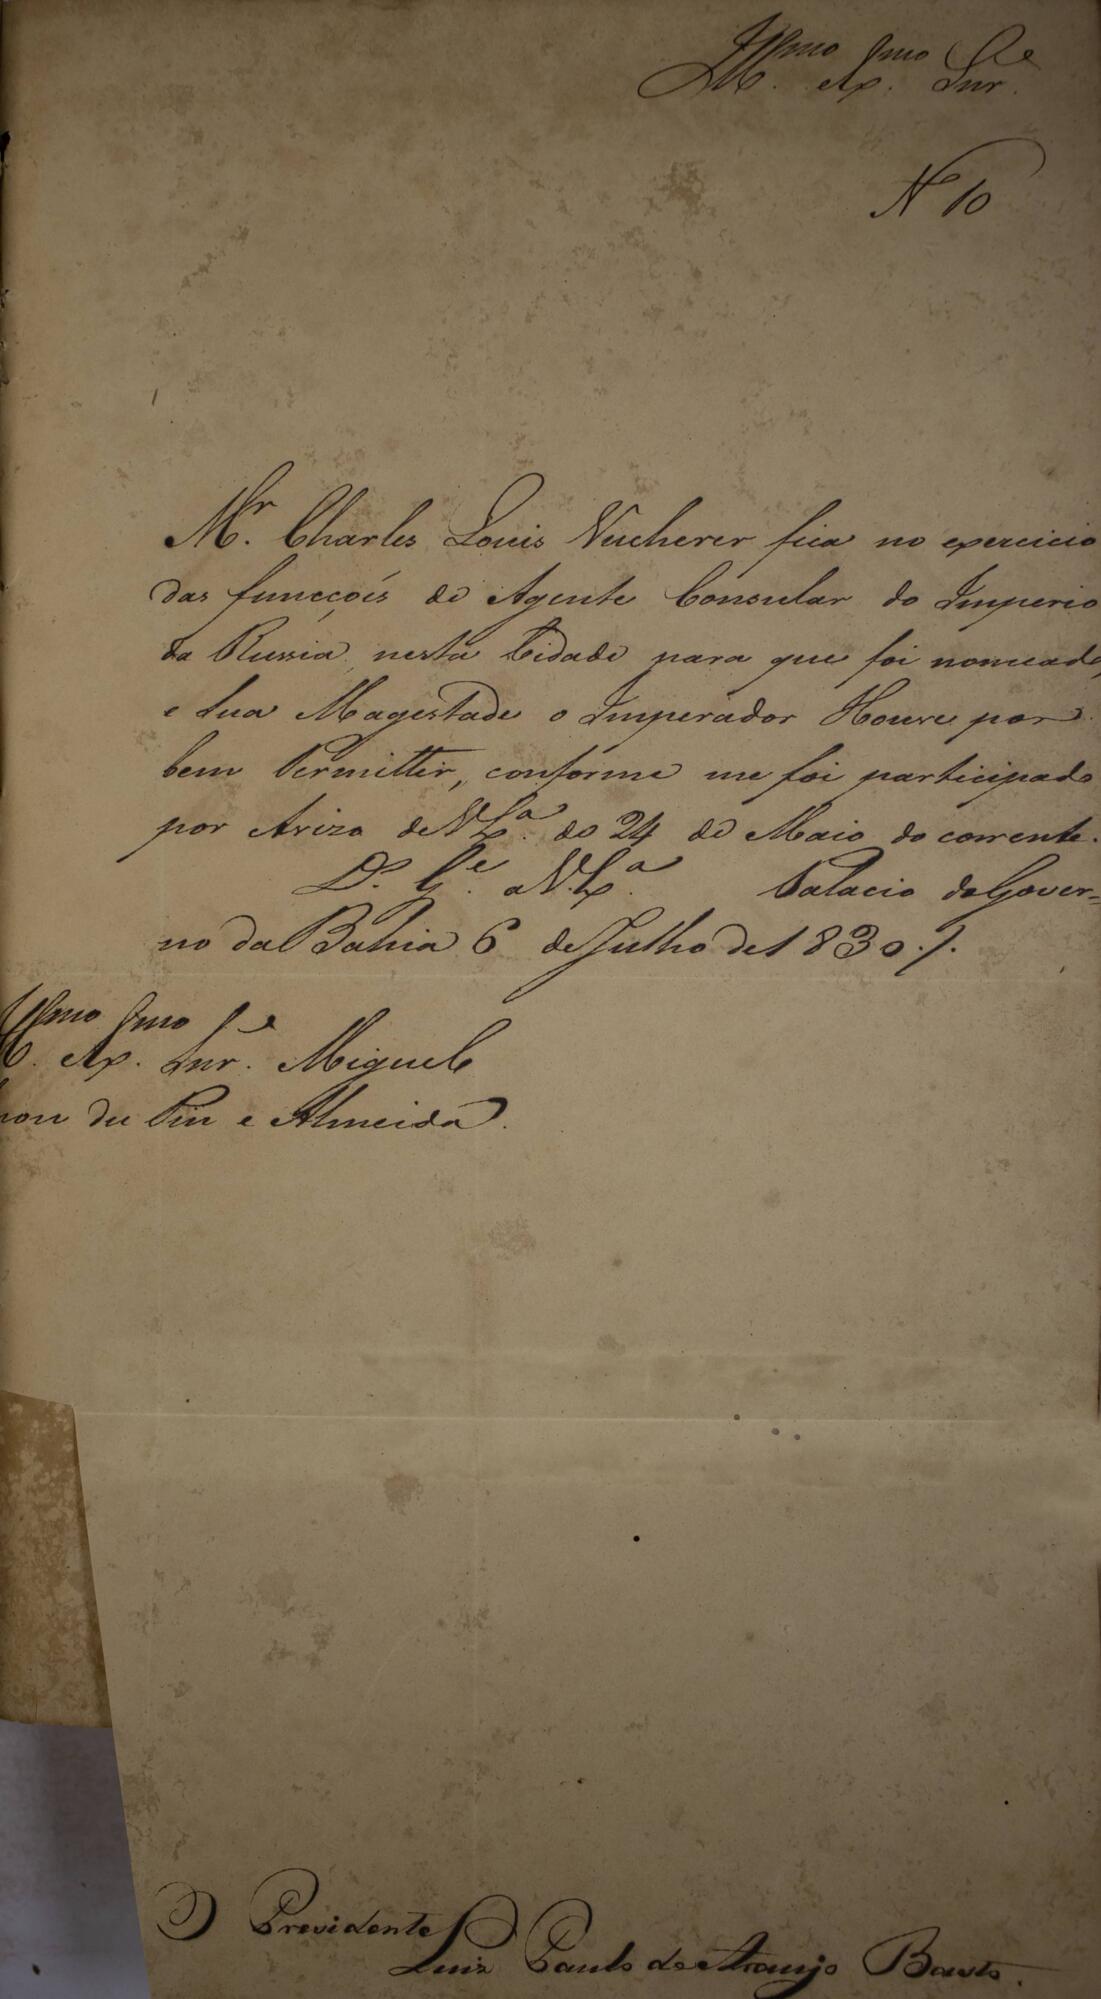 Illmo Exmo Snr.e
N 10
Mr. Charles Louis Vucherer fica no exercicio
das funcçoẽs de Agente Consular do Imperio
da Russia nesta Cidade para que foi nomeado,
e Sua Magestade o Imperador Houve por
bem Permittir, conforme me foi participado
por Avizo de V. Ex.a do 24 de Maio do corrente.
D.s G.e a V. Ex.a Palacio do Gover-
no da Bahia 6 de Julho de 1830./.
Illmo Exmo Snr.e Miguel
mon du Pin e Almeida.
O Prezidente
Luiz Paulo de Araujo Basto.